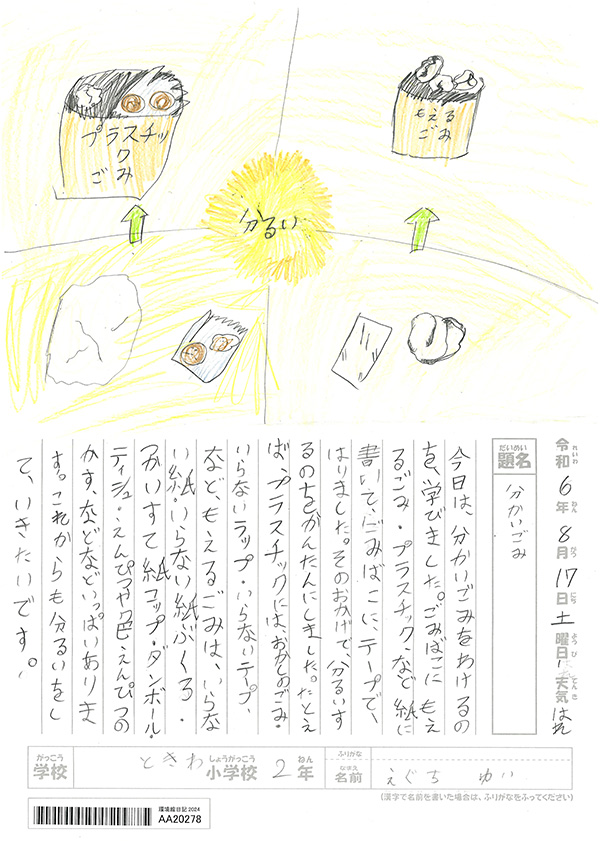 プラスチッ
ク
ごみ
もえる
ごみ
分るい
令和6年8月17日土曜日 天気 はれ
れいわ ねん がつ にち ようび てんき
だいめい
題名
分かいごみ
今日は、分かいごみをあけるの
を、学びました。ごみばこに もえ
るごみ・プラスチック、など 紙に
書いて、ごみばこに、テープで、
はりました。そのおかげで、分るいす
るのをかんたんにしました。たとえ
ば、プラスチックには、おかしのごみ・
いらないラップ・いらないテープ、
など、もえるごみは、いらな
い紙・いらない紙ぶくろ・
つかいすて紙コップ・ダンボール・
ティシュ・えんぴつや色えんぴつの
かす、などなどいっぱいありま
す。これからも分るいをし
て、いきたいです。
がっこう
学校
ときわ
しょうがっこう
小学校
2
ねん
年
ふりがな
なまえ
名前
えぐち ゆい
(漢字で名前を書いた場合は、ふりがなをふってください)
環境絵日記 2024
AA20278